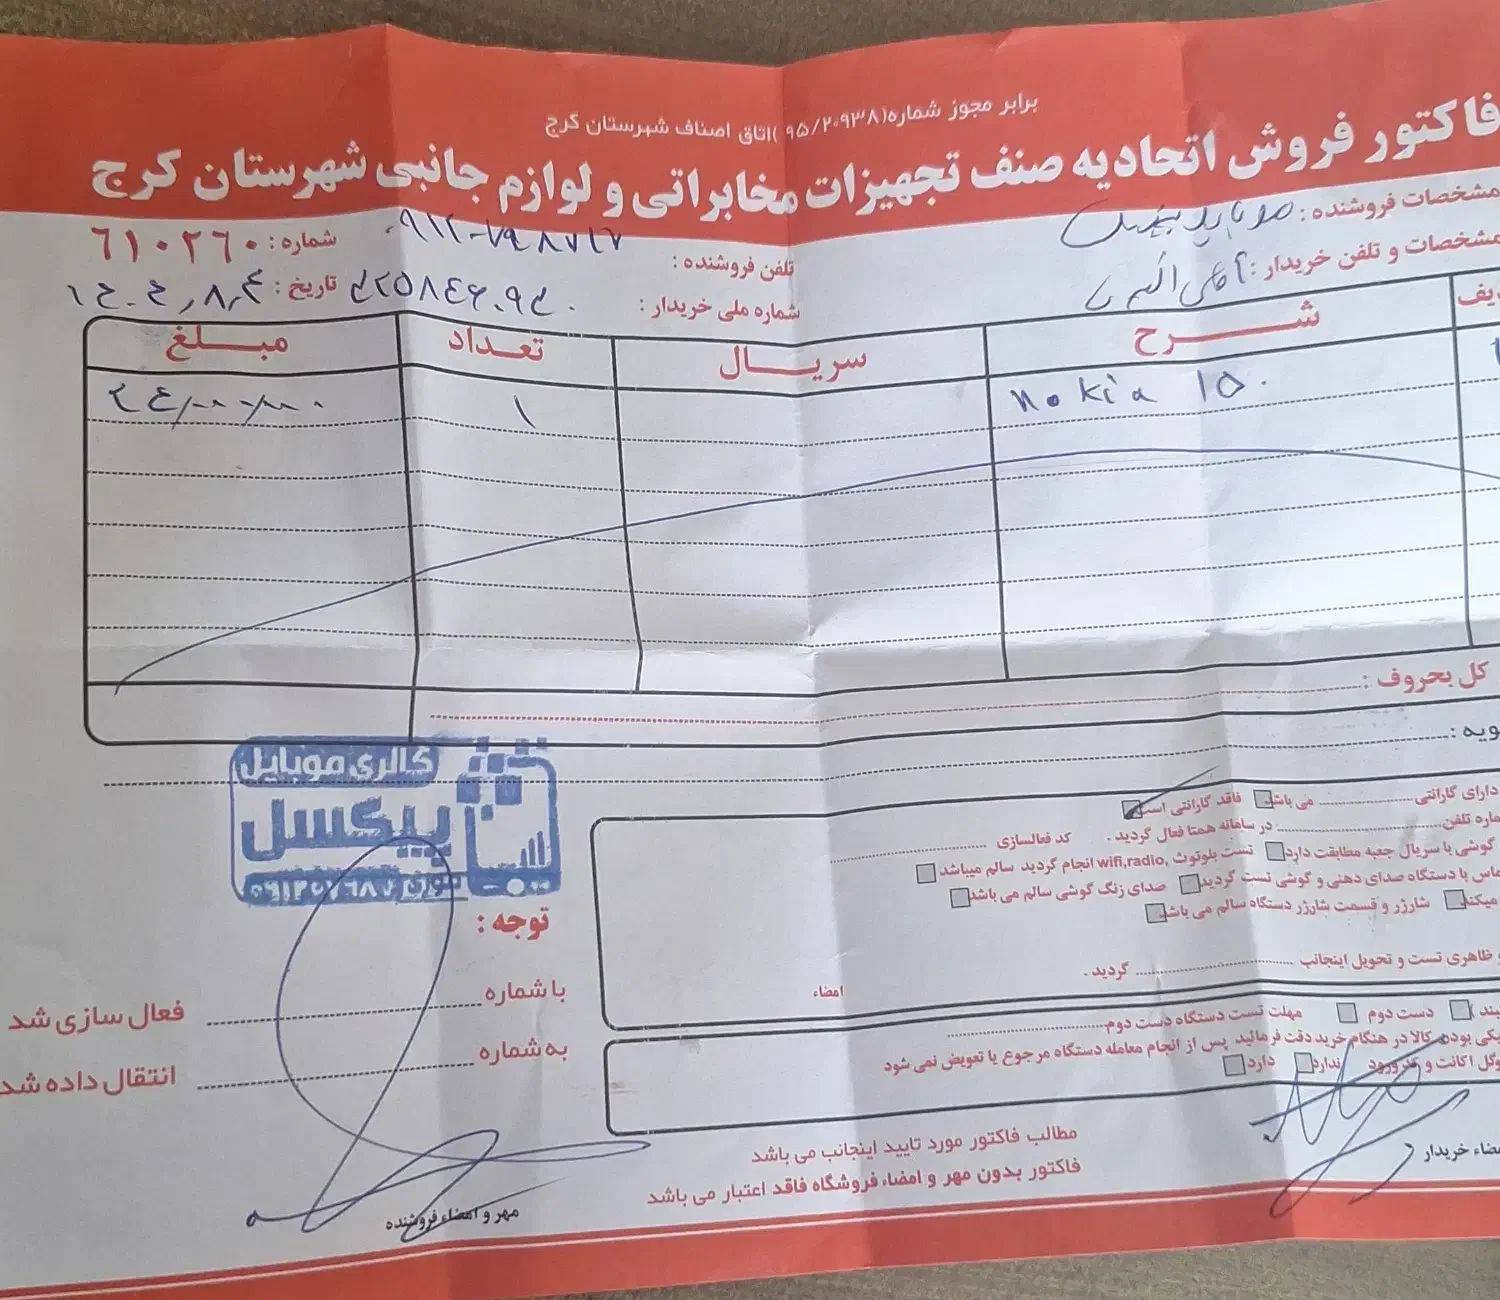 برابر مجوز شماره(۹۵/۲۰۹۳۸)اتاق اصناف شهرستان کرج
فاکتور فروش اتحادیه صنف تجهیزات مخابراتی و لوازم جانبی شهرستان کرج
مشخصات فروشنده : موبایل پیکسل
تلفن فروشنده :
شماره : ۶۱۰۲۶۰
مشخصات و تلفن خریدار : آقای
شماره ملی خریدار :
تاریخ :
شرح سریال تعداد مبلغ
nokia 150 ۱
کل بحروف :
دارای گارانتی می باشد فاقد گارانتی است
در سامانه همتا فعال گردید . کد فعالسازی
گوشی با سریال جعبه مطابقت دارد تست بلوتوث ,wifi,radio انجام گردید سالم میباشد
با دستگاه صدای دهنی و گوشی تست گردید صدای زنگ گوشی سالم می باشد
میکند شارژر و قسمت شارژر دستگاه سالم می باشد
ظاهری تست و تحویل اینجانب گردید .
امضاء
دست دوم مهلت تست دستگاه دست دوم
بودن کالا در هنگام خرید دقت فرمائید پس از انجام معامله دستگاه مرجوع یا تعویض نمی شود
اکانت و ندارد دارد
مطالب فاکتور مورد تایید اینجانب می باشد
فاکتور بدون مهر و امضاء فروشگاه فاقد اعتبار می باشد
خریدار
گالری موبایل
پیکسل
توجه :
با شماره فعال سازی شد
به شماره انتقال داده شد
مهر و امضاء فروشنده